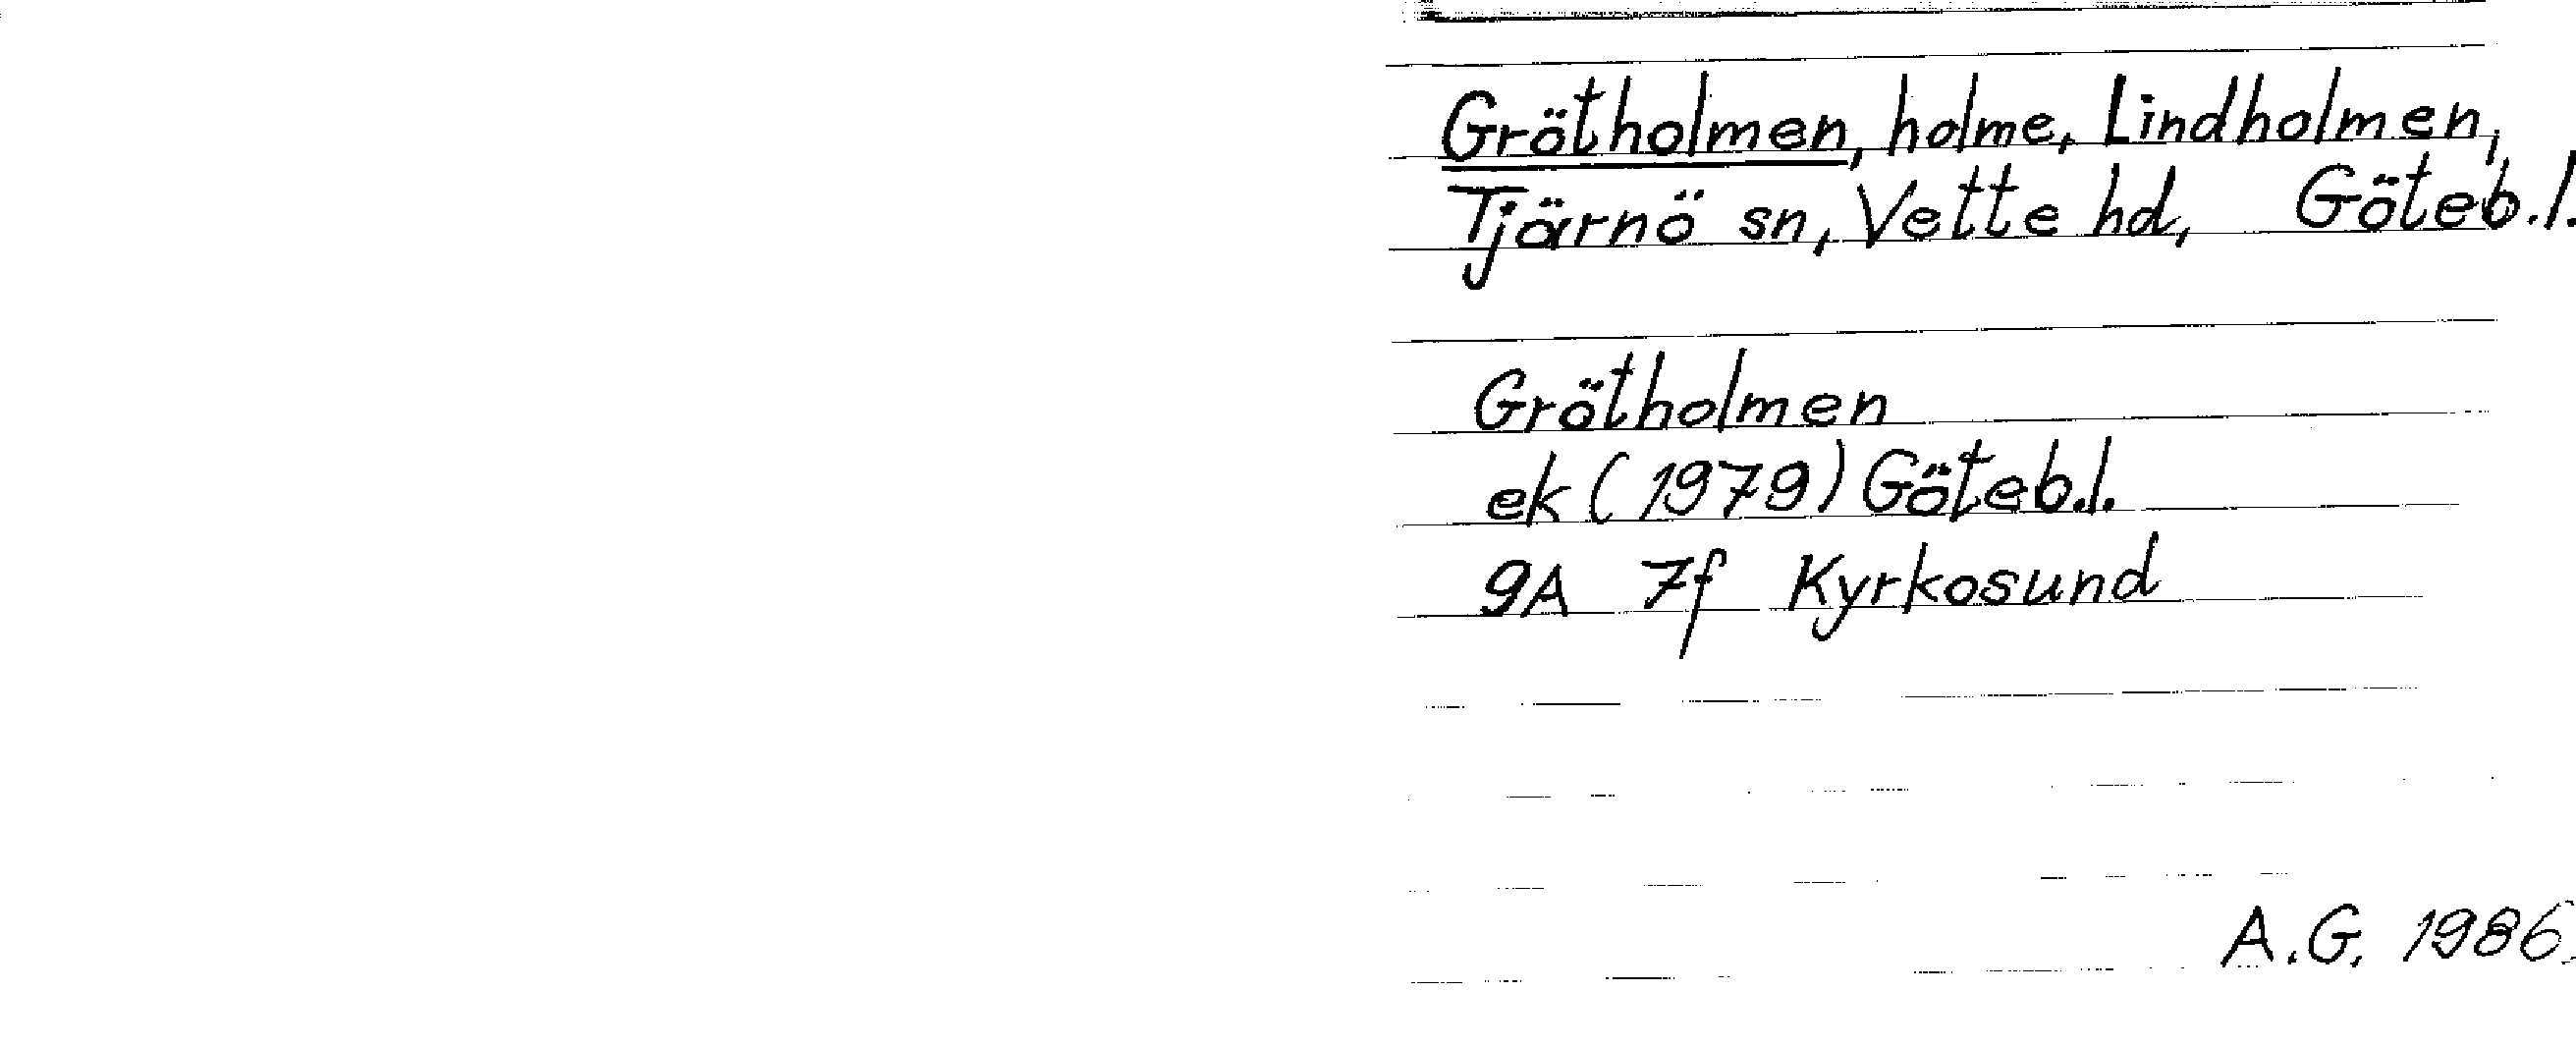 Grötholmen, holme, Lindholmen,
Tjärnö sn, Vette hd, Göteb.l.
Grötholmen
ek (1979) Göteb.l.
9A 7f Kyrkosund
A.G. 1986